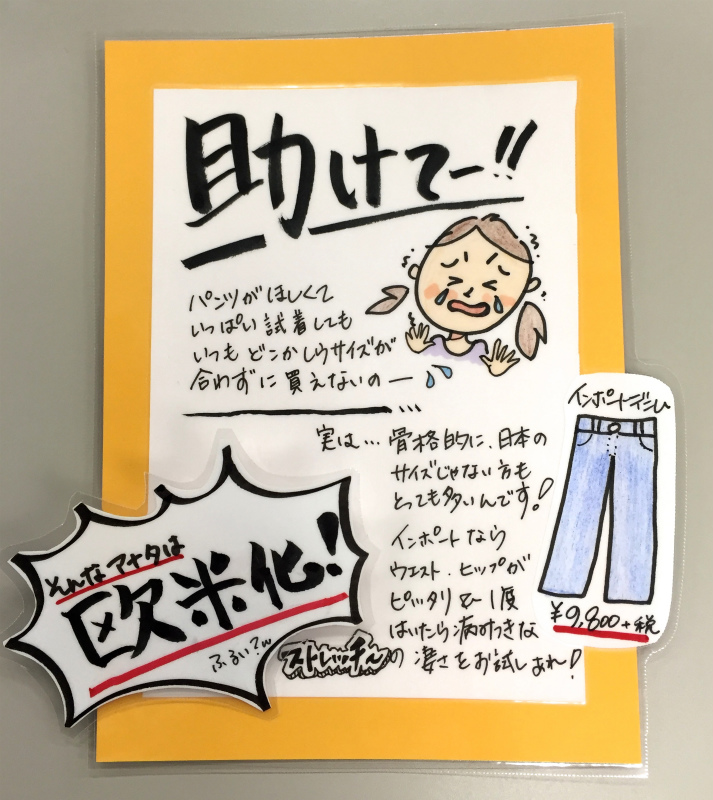 助けてー!!
パンツがほしくて
いっぱい試着しても
いつもどこかしらサイズが
合わずに買えないのー
...
実は…骨格的に、日本の
サイズじゃない方も
とっても多いんです!
インポートなら
ウエスト・ヒップが
ピッタリ&1度
はいたら病みつきな
ストレッチ〜の凄さをお試しあれ!
そんなアナタは
欧米化!
ふるい?w
インポートデニム
¥9,800+税